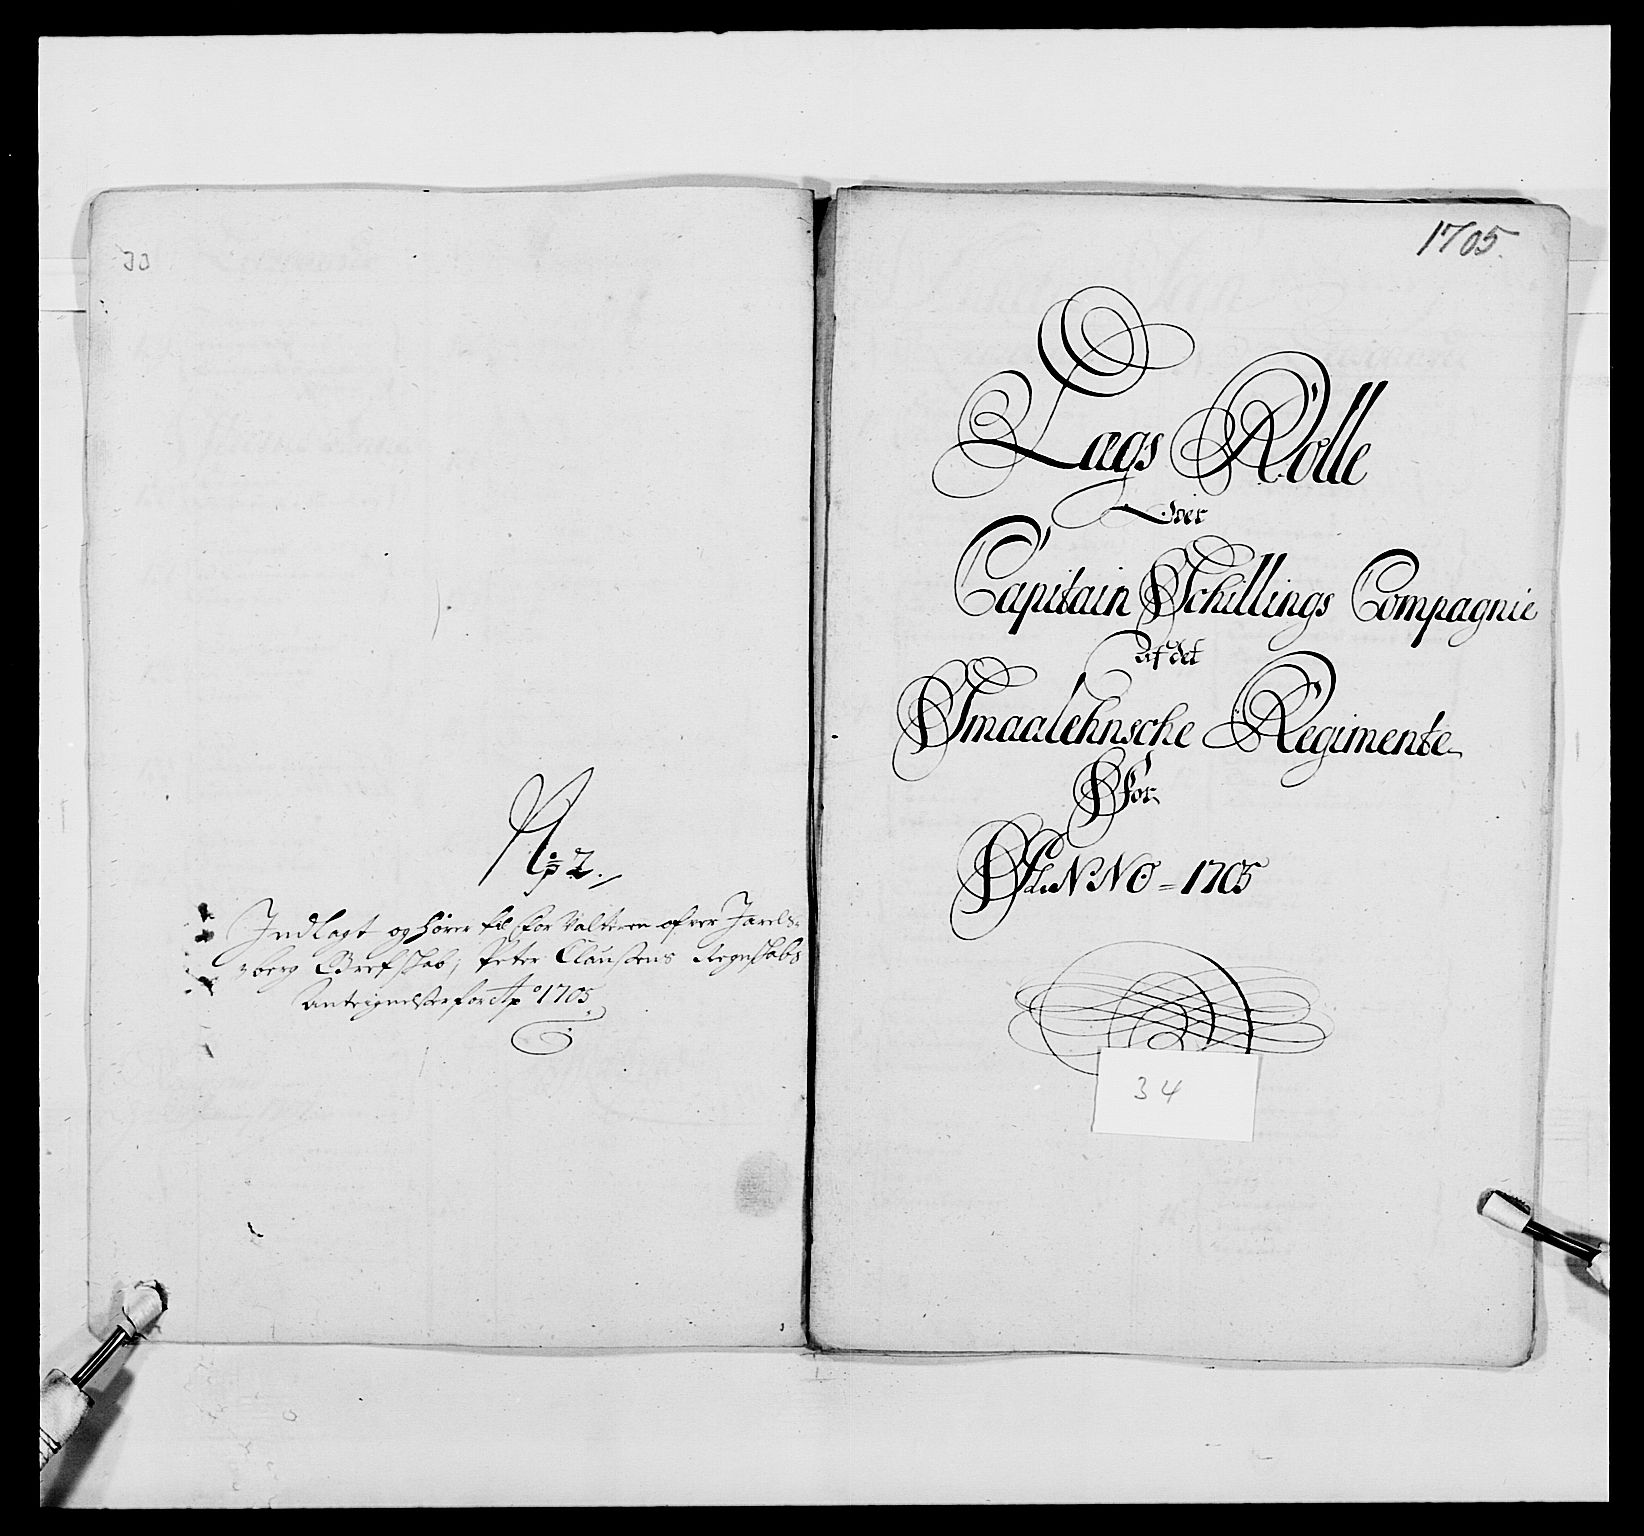 No 2.
Indlagt og hører til for Valteren ofver Jarels=
=berg Grefskab; Peter Claussens Regnskabs
Antegnelser for Ao 1705.
1705.
Lægs Rolle
Over
Capitain Schillings Compagnie
af det
Smaalehnsche Regimente
For
ANNO = 1705
34